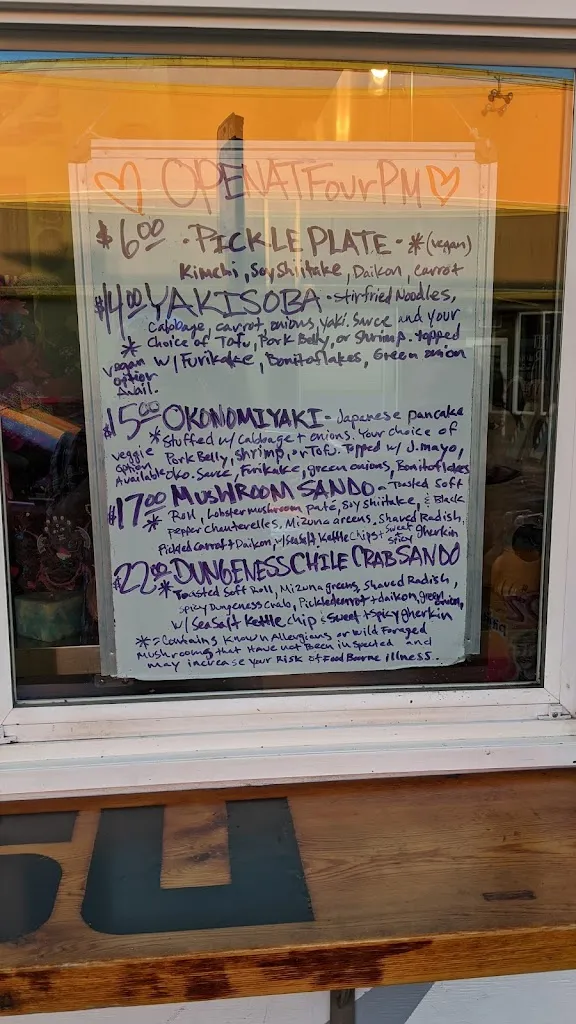 ♡ OPEN AT Four PM ♡
$6.00 · PICKLE PLATE · * (vegan)
Kimchi, Soy Shiitake, Daikon, carrot
$14.00 YAKISOBA - stirfried Noodles,
Cabbage, carrot, onions, yaki. Sauce and your
* choice of Tofu, Pork Belly, or Shrimp. topped
vegan option avail. w/ Furikake, Bonitoflakes, Green onion
$15.00 OKONOMIYAKI - Japanese pancake
* Stuffed w/ cabbage + onions. Your choice of
veggie Pork Belly, shrimp, or Tofu. Topped w/ J.mayo,
option Available Oko. Sauce, Furikake, green onions, Bonitoflakes
$17.00 MUSHROOM SANDO - Toasted Soft
* Roll, Lobster mushroom pate, Soy shiitake, & Black
Pepper Chanterelles, Mizuna greens, Shaved Radish,
Pickled carrot + Daikon, w/ Seasalt Kettle Chips + sweet spicy gherkin
$22.00 DUNGENESS CHILE CRAB SANDO
* Toasted Soft Roll, Mizuna greens, Shaved Radish,
Spicy Dungeness Crab, Pickled carrot + daikon, green onion,
w/ Sea Salt Kettle chip & Sweet + Spicy gherkin
* = Contains Known Allergians or Wild Foraged
Mushrooms that Have not Been inspected and
may increase your Risk of Food Bourne illness.